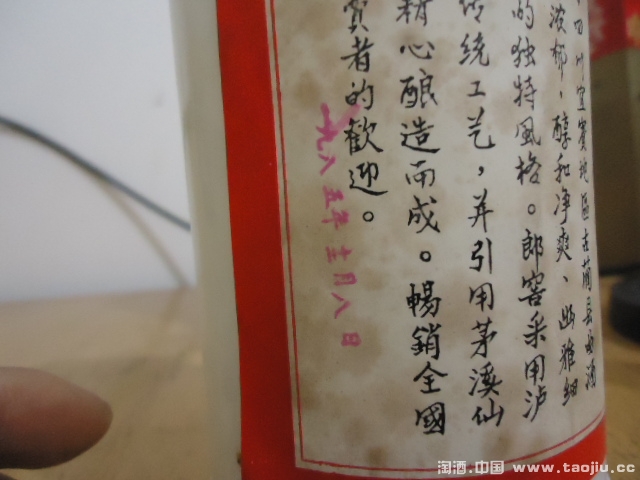 四川宜賓地區古蔺县曲酒
浓郁，醇和净爽、幽雅細
的独特風格。郎窖采用泸
传统工艺，并引用茅溪仙
精心酿造而成。暢銷全國
賞者的歡迎。
一九八五年十二月八日
淘酒.中国 www.taojiu.cc